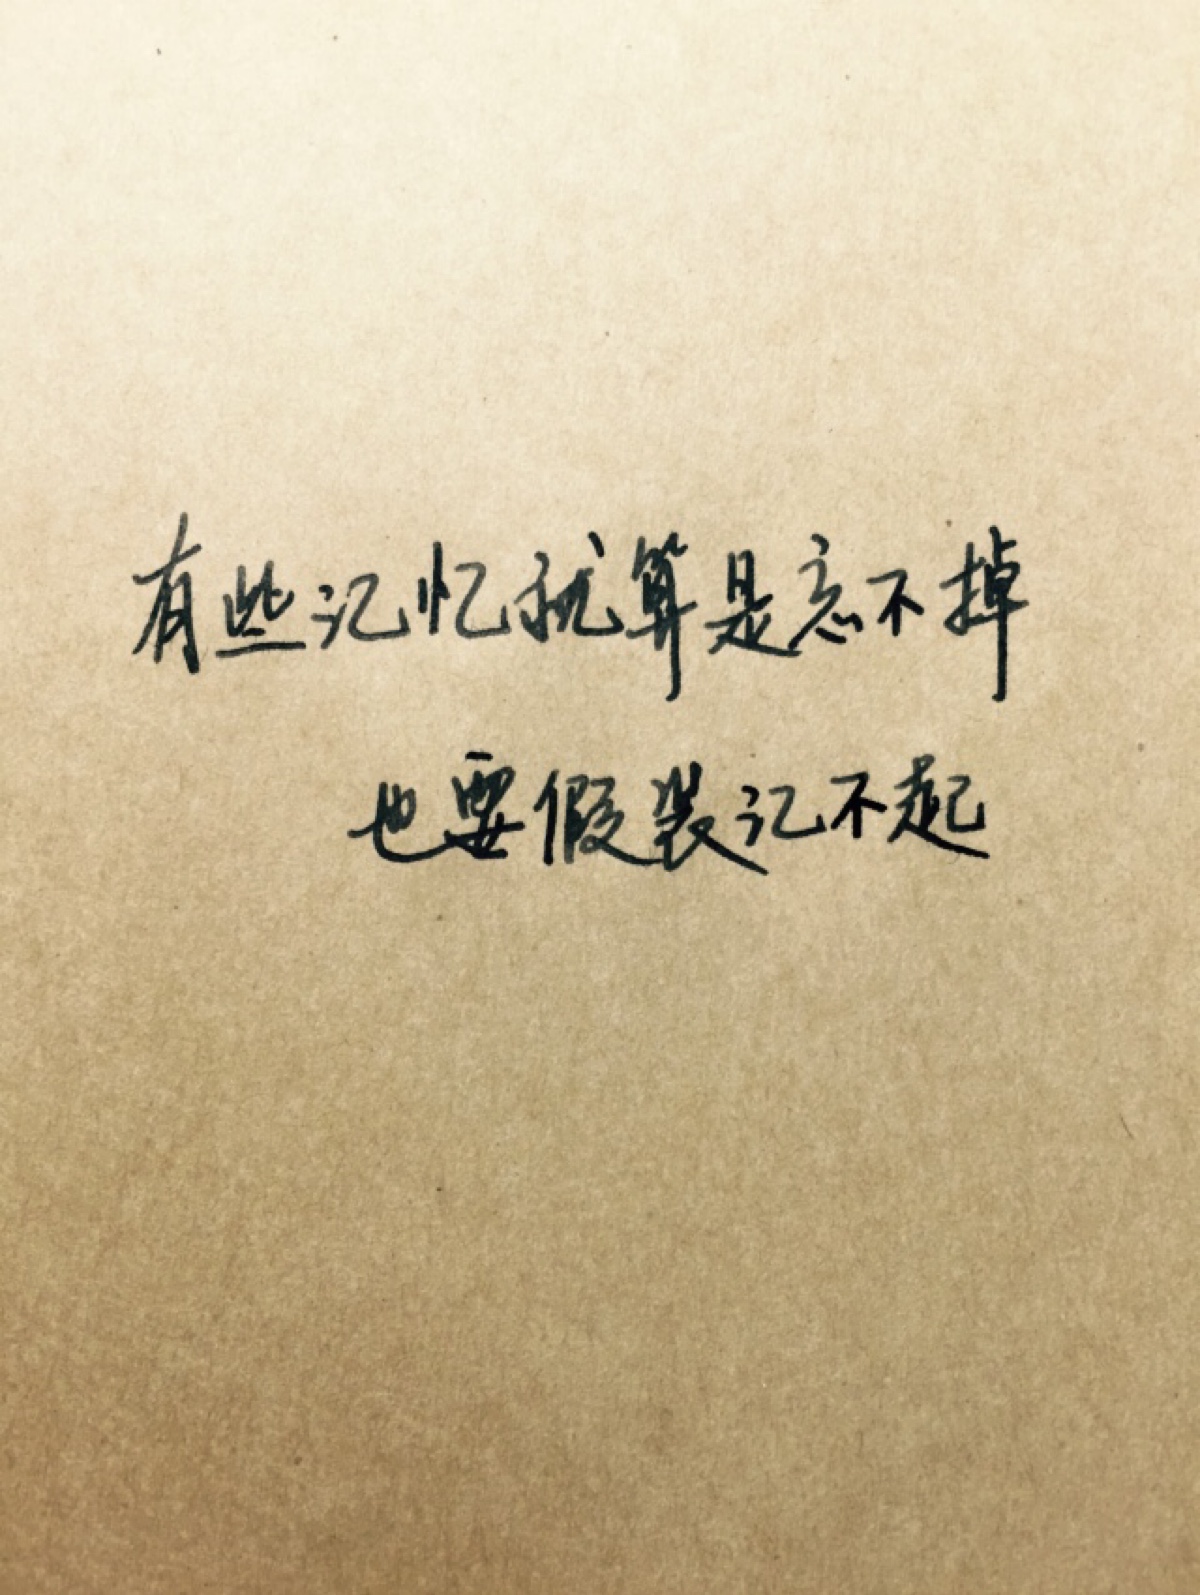 有些记忆就算是忘不掉
也要假装记不起